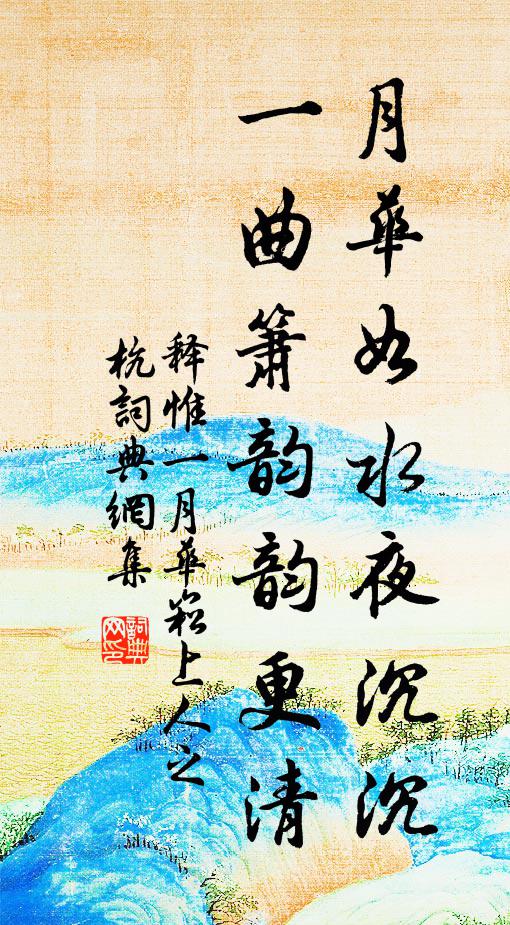 月華如水夜沉沉
一曲簫韵韵更清
释惟一月華崧上人之
杭詞典網集
詞典
网印